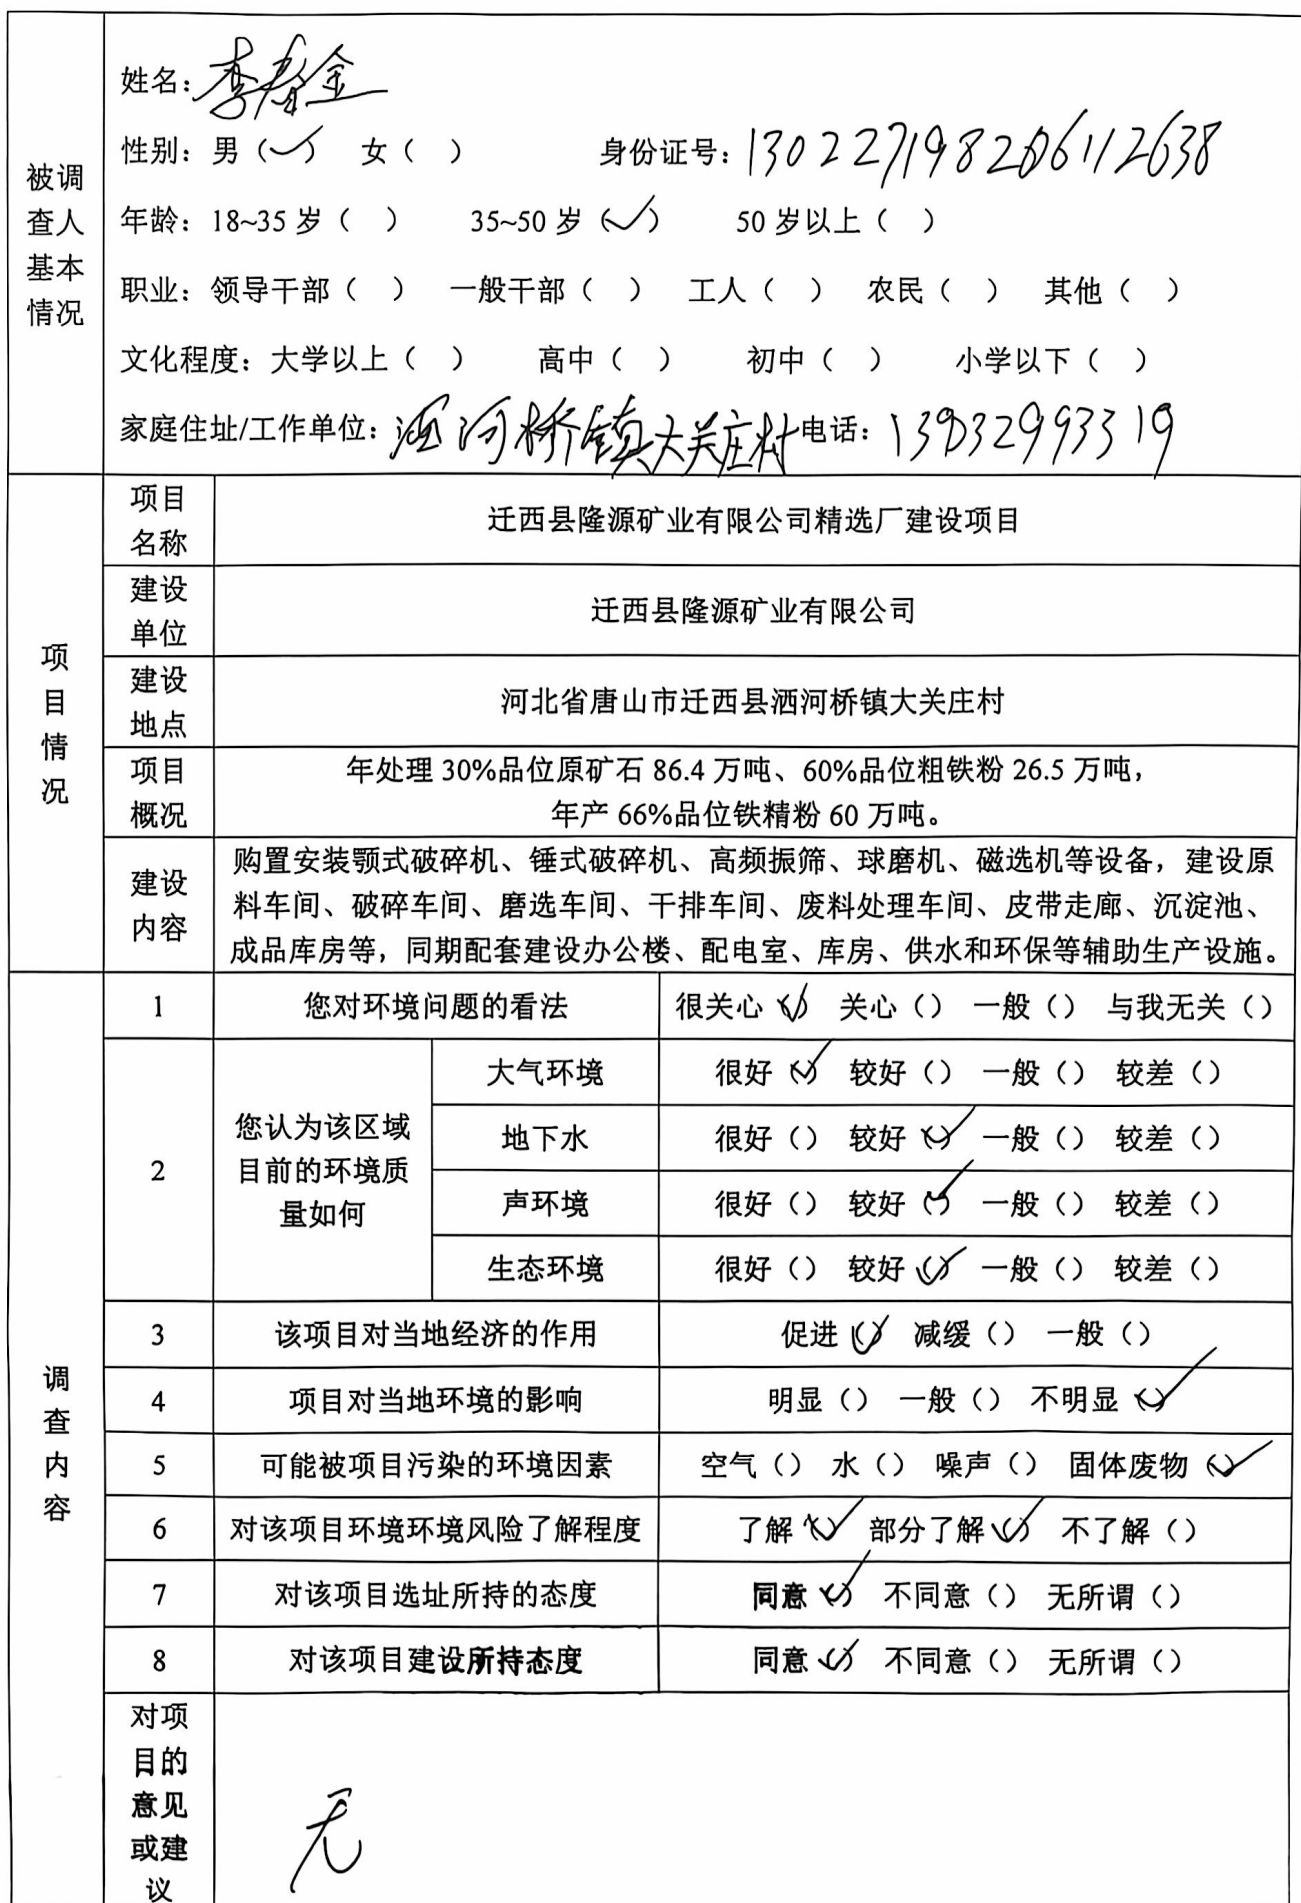 姓名：李春金
性别：男（✓） 女（ ） 身份证号：
年龄：18~35 岁（ ） 35~50 岁（✓） 50 岁以上（ ）
被调查人基本情况
职业：领导干部（ ） 一般干部（ ） 工人（ ） 农民（ ） 其他（ ）
文化程度：大学以上（ ） 高中（ ） 初中（ ） 小学以下（ ）
家庭住址/工作单位：洒河桥镇大关庄村 电话：
项目情况
项目名称 迁西县隆源矿业有限公司精选厂建设项目
建设单位 迁西县隆源矿业有限公司
建设地点 河北省唐山市迁西县洒河桥镇大关庄村
项目概况 年处理 30%品位原矿石 86.4 万吨、60%品位粗铁粉 26.5 万吨，
年产 66%品位铁精粉 60 万吨。
建设内容 购置安装颚式破碎机、锤式破碎机、高频振筛、球磨机、磁选机等设备，建设原
料车间、破碎车间、磨选车间、干排车间、废料处理车间、皮带走廊、沉淀池、
成品库房等，同期配套建设办公楼、配电室、库房、供水和环保等辅助生产设施。
调查内容
1 您对环境问题的看法 很关心（✓） 关心（） 一般（） 与我无关（）
2 您认为该区域目前的环境质量如何
大气环境 很好（✓） 较好（） 一般（） 较差（）
地下水 很好（） 较好（✓） 一般（） 较差（）
声环境 很好（） 较好（✓） 一般（） 较差（）
生态环境 很好（） 较好（✓） 一般（） 较差（）
3 该项目对当地经济的作用 促进（✓） 减缓（） 一般（）
4 项目对当地环境的影响 明显（） 一般（） 不明显（✓）
5 可能被项目污染的环境因素 空气（） 水（） 噪声（） 固体废物（✓）
6 对该项目环境环境风险了解程度 了解（✓） 部分了解（✓） 不了解（）
7 对该项目选址所持的态度 同意（✓） 不同意（） 无所谓（）
8 对该项目建设所持态度 同意（✓） 不同意（） 无所谓（）
对项目的意见或建议 无